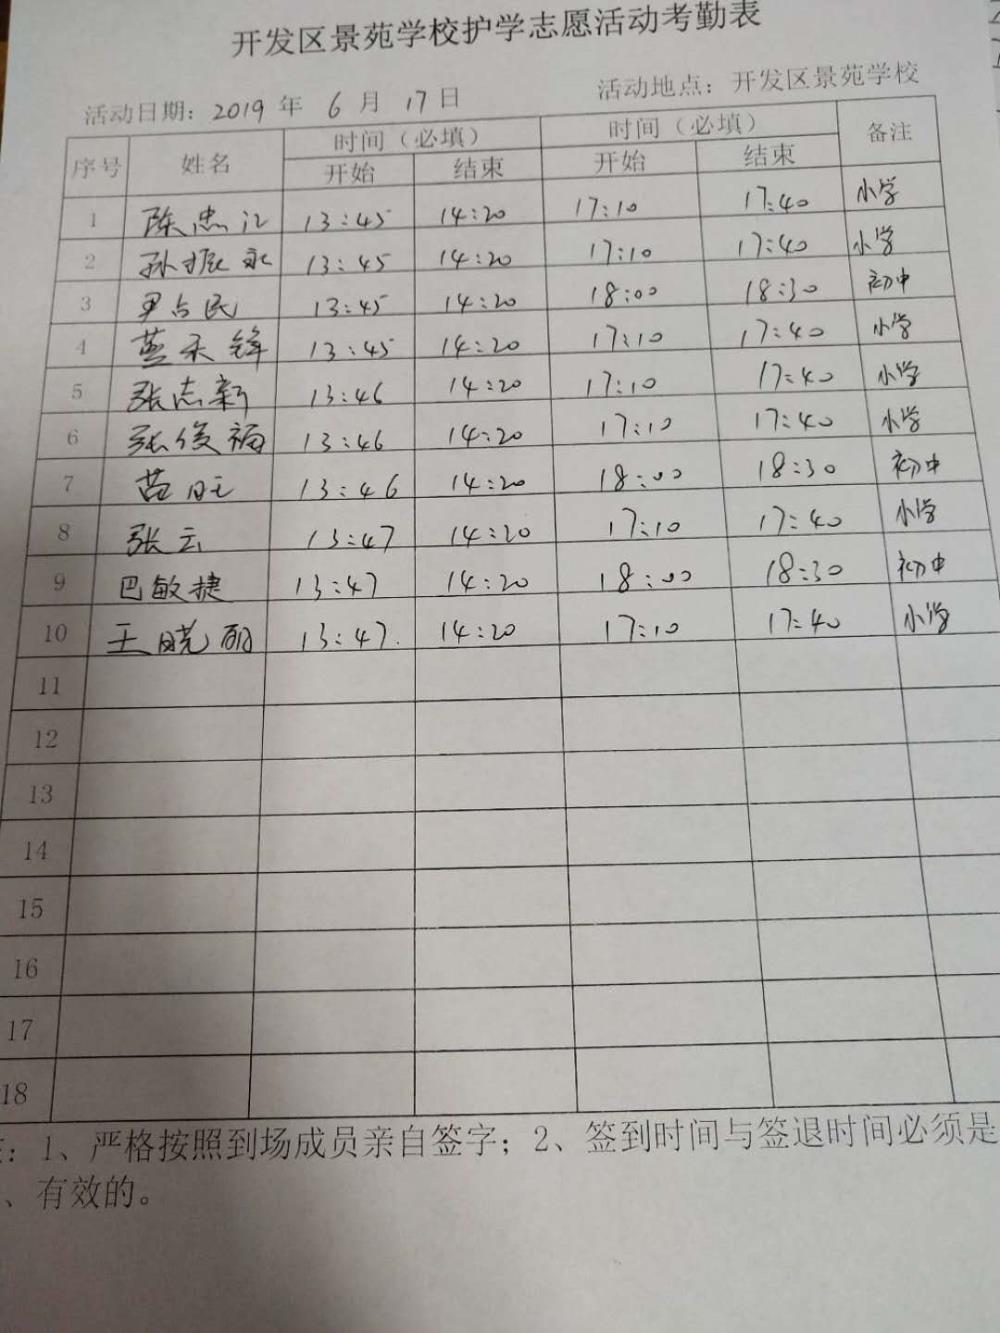 开发区景苑学校护学志愿活动考勤表
活动日期：2019 年 6 月 17 日 活动地点：开发区景苑学校
序号 姓名 时间（必填） 时间（必填） 备注
开始 结束 开始 结束
1 陈忠江 13:45 14:20 17:10 17:40 小学
2 孙振永 13:45 14:20 17:10 17:40 小学
3 尹占民 13:45 14:20 18:00 18:30 初中
4 13:45 14:20 17:10 17:40 小学
5 张志新 13:46 14:20 17:10 17:40 小学
6 张俊福 13:46 14:20 17:10 17:40 小学
7 苗旺 13:46 14:20 18:00 18:30 初中
8 张云 13:47 14:20 17:10 17:40 小学
9 巴敏捷 13:47 14:20 18:00 18:30 初中
10 王晓丽 13:47. 14:20 17:10 17:40 小学
11
12
13
14
15
16
17
18
：1、严格按照到场成员亲自签字；2、签到时间与签退时间必须是
、有效的。